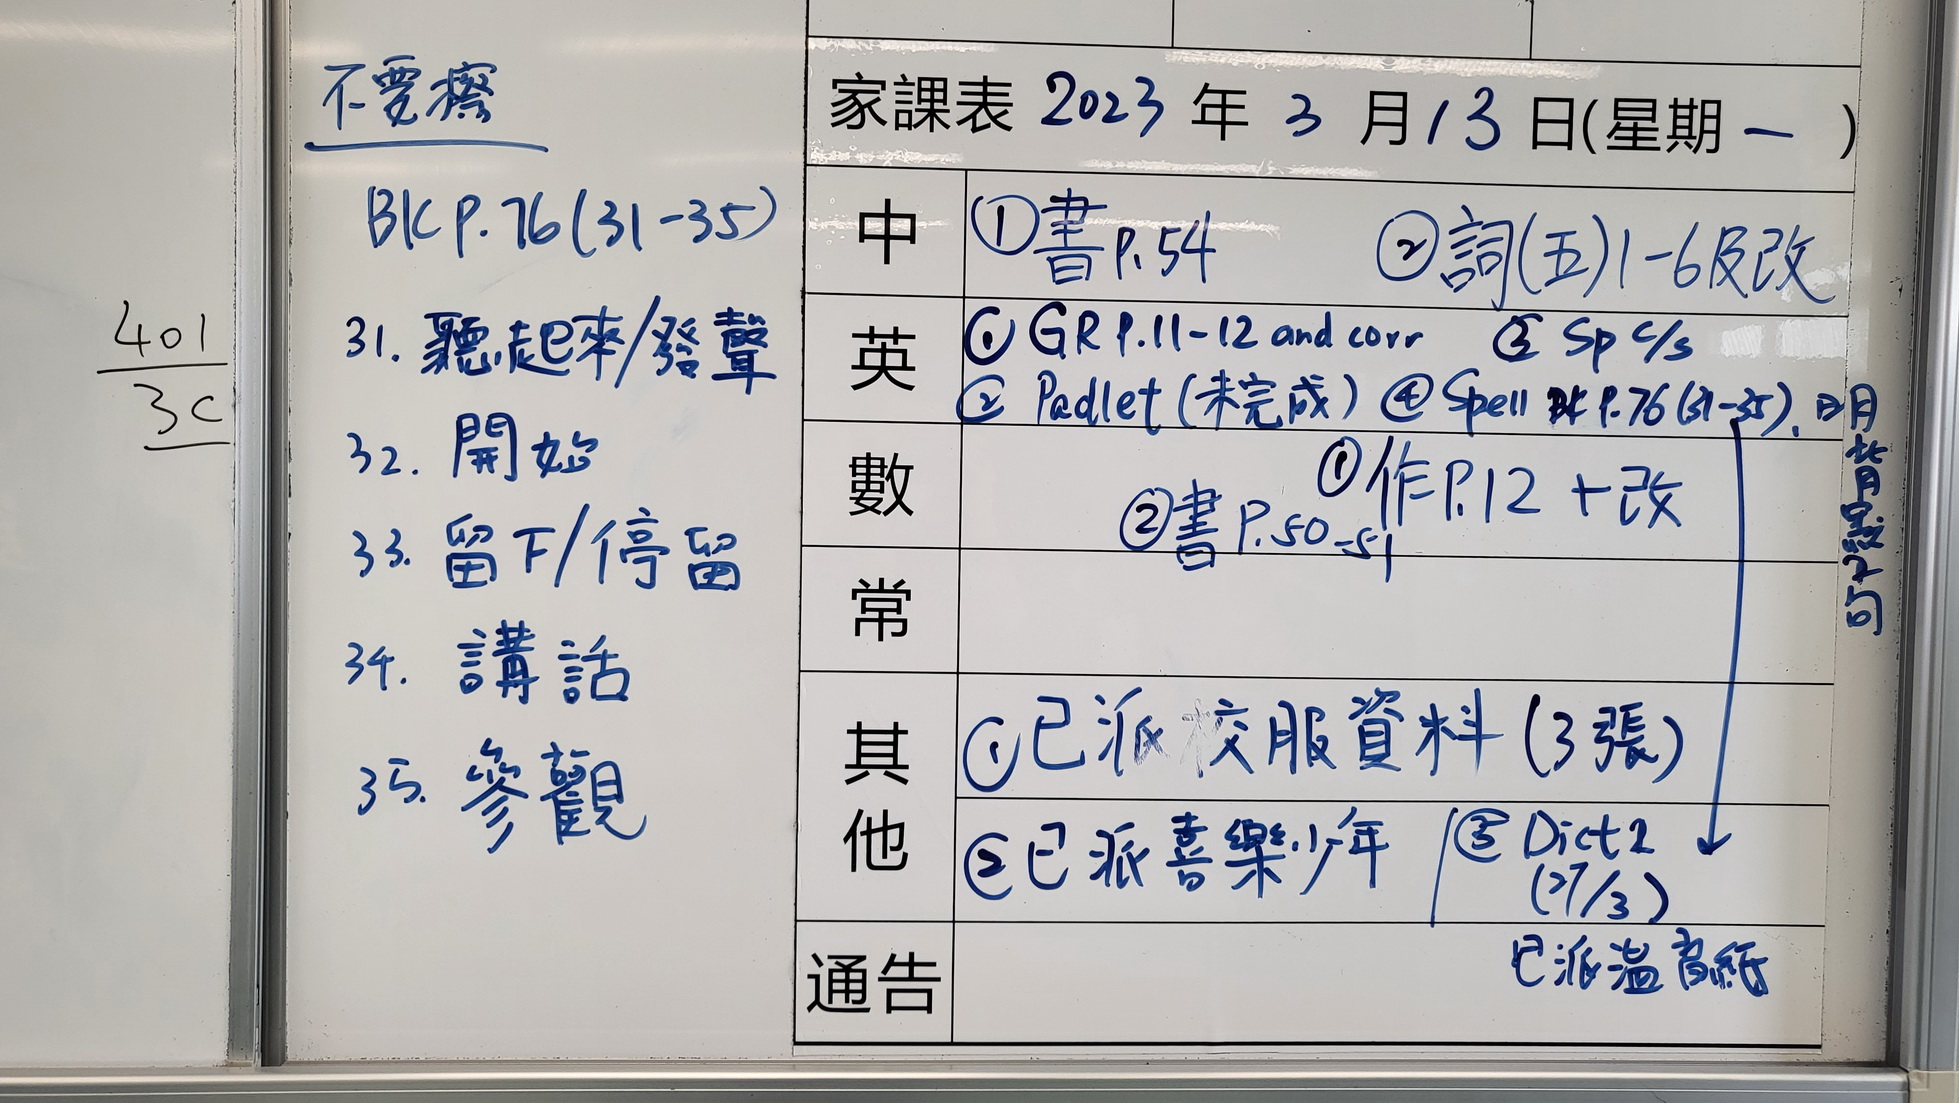 401
3C
不要擦
BK P.76 (31-35)
31. 聽起來/發聲
32. 開始
33. 留下/停留
34. 講話
35. 參觀
家課表 2023 年 3 月 13 日(星期 一 )
中 ①書P.54 ②詞(五)1-6及改
英 ① GR P.11-12 and corr ③ Sp c/s
② Padlet (未完成) ④ Spell BK P.76 (31-35).
背默2句
數 ①作P.12 + 改
②書P.50-51
常
其他 ①已派校服資料 (3張)
②已派喜樂少年 ③ Dict 2
(27/3)
已派溫習紙
通告